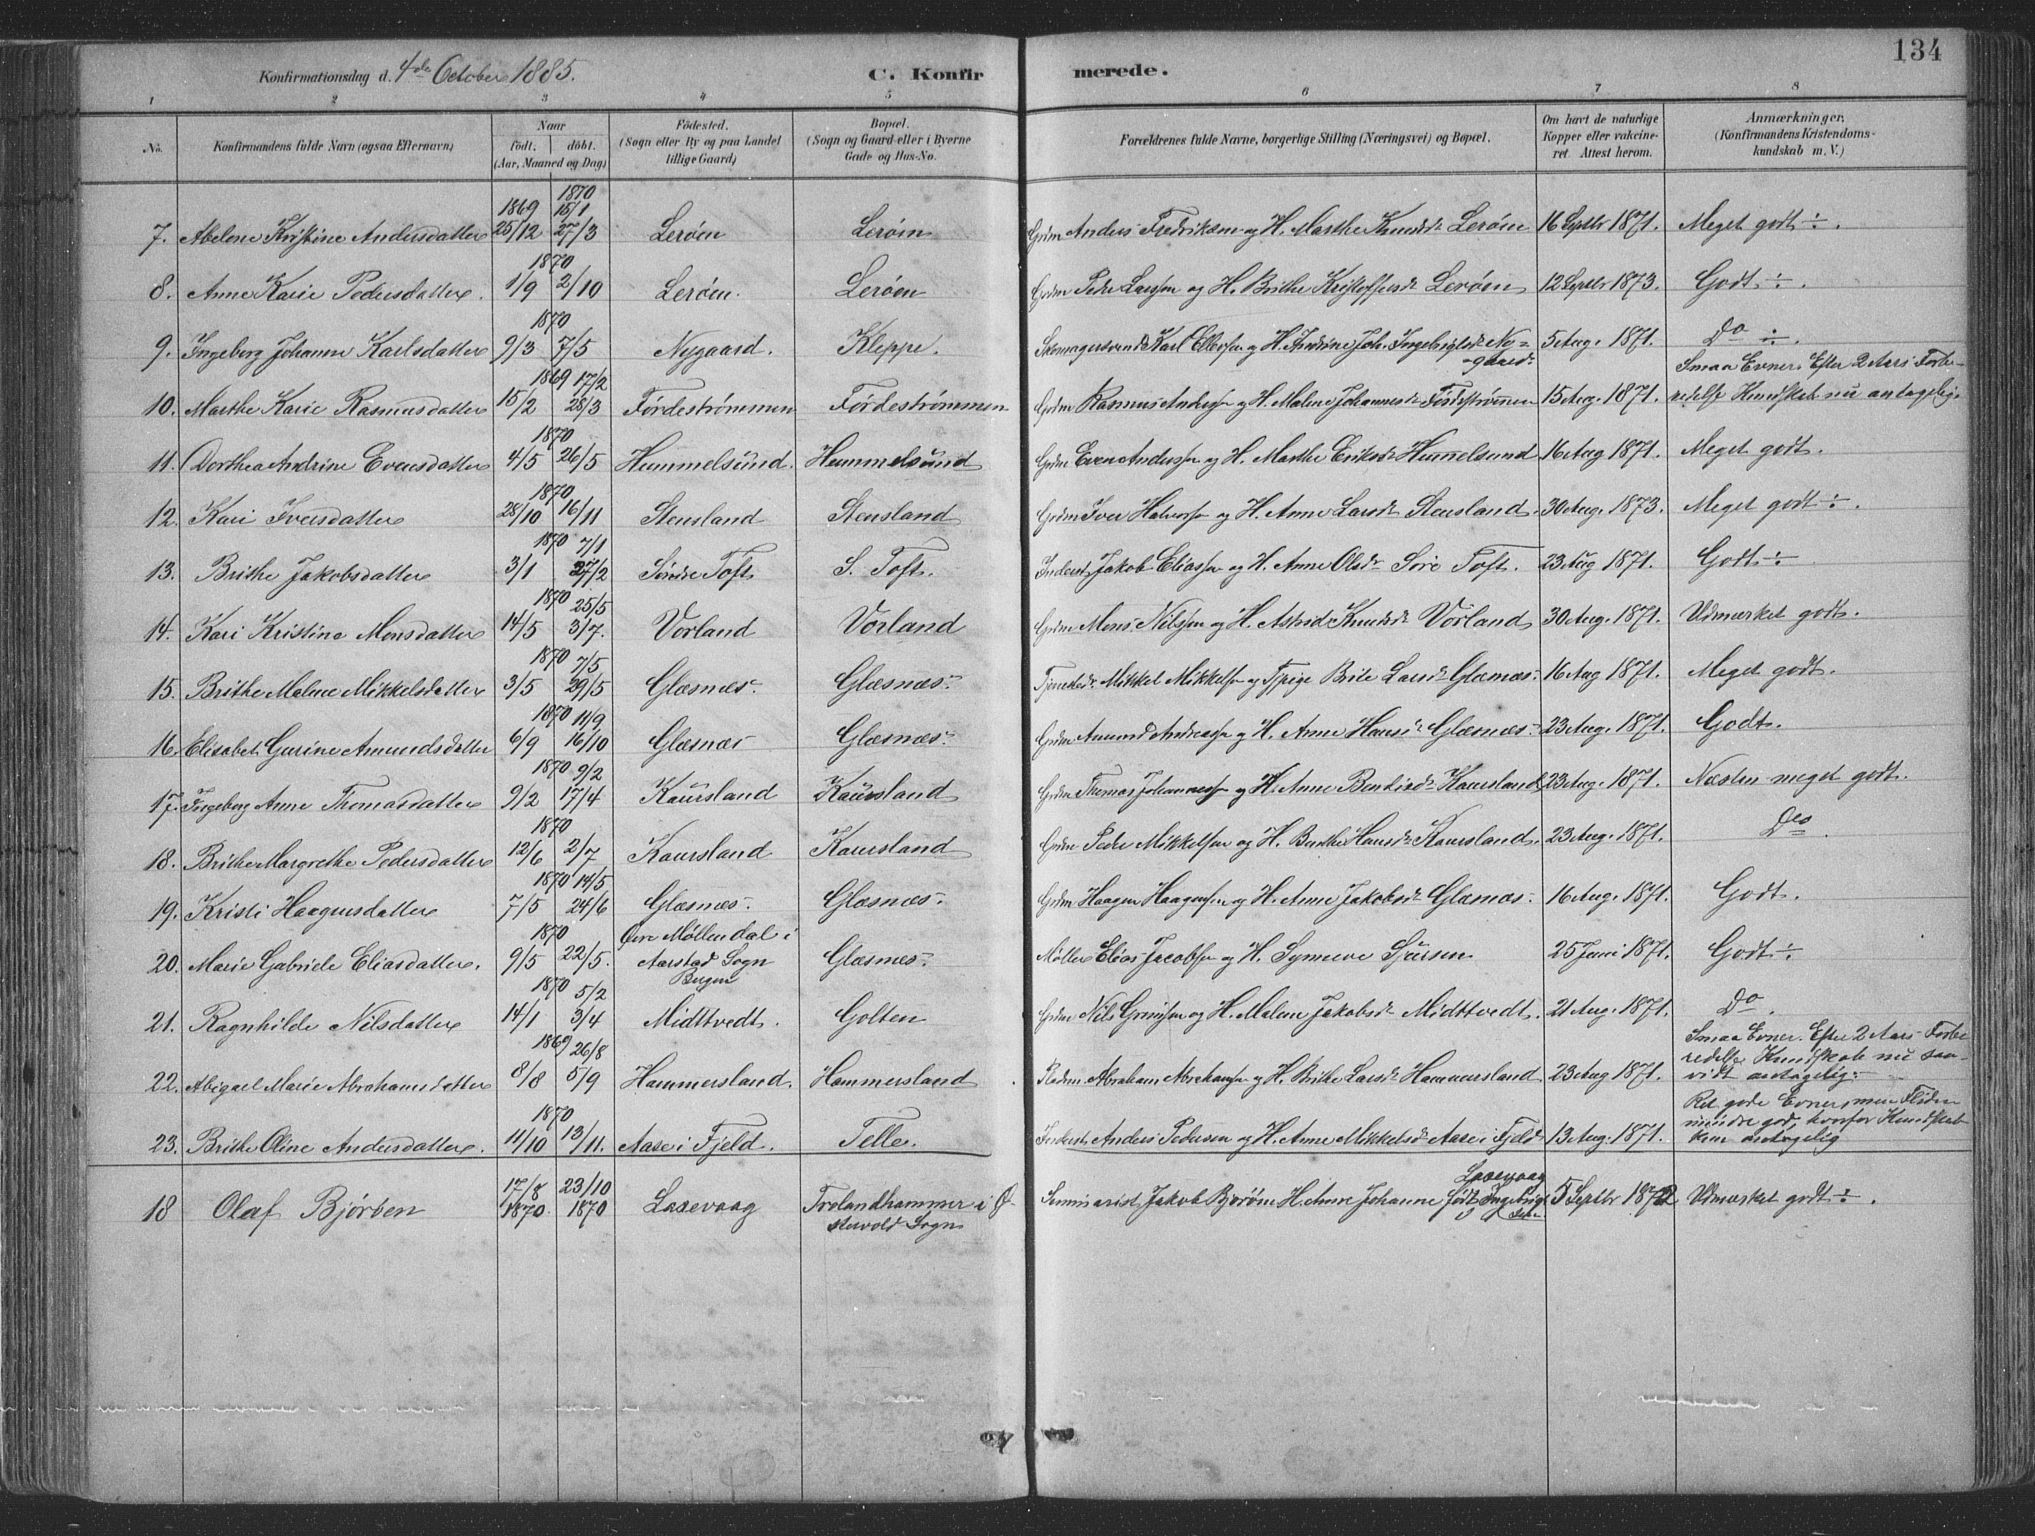 134
Konfirmationsdag d. 4de October 1885. C. Konfirmerede.
1 2 3 4 5 6 7 8
No. Konfirmandens fulde Navn (ogsaa Efternavn) Naar födt. döbt. (Aar, Maaned og Dag) Födested. (Sogn eller By og paa Landet tillige Gaard) Bopæl. (Sogn og Gaard eller i Byerne Gade og Hus-No. Forældrenes fulde Navne, borgerlige Stilling (Næringsvei) og Bopæl. Om havt de naturlige Kopper eller vakcineret Attest herom. Anmærkninger. (Konfirmandens Kristendomskundskab m. V.)
7. Abelone Kristine Andersdatter 1869 25/12 1870 15/1 27/3 Lerøen Lerøen Grdm Anders Fredriksen og H. Marthe Knudsd. Lerøen 16 Septbr 1871. Meget godt ÷.
8. Anne Karie Pedersdatter. 1870 1/9 2/10 Lerøen. Lerøen Grdm Peder Larssen og H. Brithe Kristoffersd. Lerøen 12 Septbr 1873. Godt ÷.
9. Ingeborg Johanne Karlsdatter 1870 9/3 7/5 Nygaard. Kleppe. Karl Ellerssen og H. Andrine Joh. Ingebrigtsd. Nygaard. 5 Aug. 1871. Do ÷.
10. Marthe Karie Rasmusdatter 1869 15/2 17/2 28/3 Førdestrømmen Førdestrømmen Grdm Rasmus Anderssen og H. Malene Johannesd. Førdestrømmen 15 Aug. 1871. Smaa Evner. Efter 2 Aars Forberedelse Kundskab nu antagelig.
11. Dorthea Andrine Evensdatter 1870 4/5 26/5 Hummelsund. Hummelsund Grdm Even Anderssen og H. Marthe Eriksd. Hummelsund 16 Aug 1871. Meget godt.
12. Kari Iversdatter 1870 28/10 16/11 Stensland Stensland Grdm Iver Halvorssen og H. Anne Larsd. Stensland. 30 Aug. 1873. Meget godt ÷.
13. Brithe Jakobsdatter 1870 3/1 7/1 27/2 Søndre Toft S. Toft. Inderst Jakob Eliassen og H. Anne Olsd. Søre Toft. 23 Aug 1871. Godt ÷
14. Kari Kristine Monsdatter 1870 14/5 25/5 3/7. Vorland Vorland Grdm Mons Nilssen og H. Astrid Knudsd. Vorland 30 Aug. 1871. Udmærket godt.
15. Brithe Malene Mikkelsdatter 1870 3/5 7/5 29/5 Glæsnæs. Glæsnæs. Mikkel Mikkelsen og Pige Brite Larsd. Glæsnæs. 16 Aug 1871. Meget godt.
16. Elisabet Gurine Amundsdatter 1870 6/9 11/9 16/10 Glæsnæs Glæsnæs. Grdm Amund Andressen og H. Anne Hansd. Glæsnæs. 23 Aug. 1871. Godt.
17. Ingeborg Anne Thomasdatter 1870 9/2 9/2 17/4 Kaursland Kaursland Grdm Thomas Johannessen og H. Anne Bendixd. Kaursland 23 Aug. 1871. Næsten meget godt.
18. Brithe Margrethe Pedersdatter 1870 12/6 2/7 Kaursland Kaursland Grdm Peder Mikkelsen og H. Hansd. Kaursland. 23 Aug. 1871. Do.
19. Kristi Haagensdatter 1870 7/5 14/5 24/6 Glæsnæs. Glæsnæs. Grdm Haagen Haagenssen og H. Anne Jakobsd. Glæsnæs. 16 Aug. 1871. Godt.
20. Marie Gabriele Eliasdatter. 1870 9/5 22/5. Øvre Møllendal i Aarstad Sogn Bergen Glæsnæs. Møller Elias Jacobsen og H. Synneve Sjursen 25 Juni 1871. Godt ÷
21. Ragnhilde Nilsdatter 1870 14/1 5/2 3/4 Midttvedt. Golten Grdm Nils og H. Malene Jakobsd. Midttvedt. 21 Aug. 1871. Do.
22. Abigael Marie Abrahamsdatter 1869 8/8 26/8 5/9 Hammersland. Hammersland Abraham Abrahamsen og H. Brithe Larsd. Hammersland. 23 Aug 1871. Smaa Evner. Efter 2 Aars Forberedelse Kundskab nu saavidt antagelig.
23. Brithe Oline Andersdatter. 1870 11/10 13/11. Aase i Fjeld. Telle. Inderst Anders Pedersen og H. Anne Mikkelsd. Aase i Fjeld 13 Aug. 1871. Ret gode Evner, men Fliden mindre god, hvorfor Kundskab kun antagelig
18 Olaf Bjørøen 17/8 1870. 23/10 1870 Laxevaag Trolandhammer i Østervold Sogn Seminarist Jakob Bjørøen H. Anne Johanne født Laxevaag 5 Septbr 1872 Udmærket godt ÷.